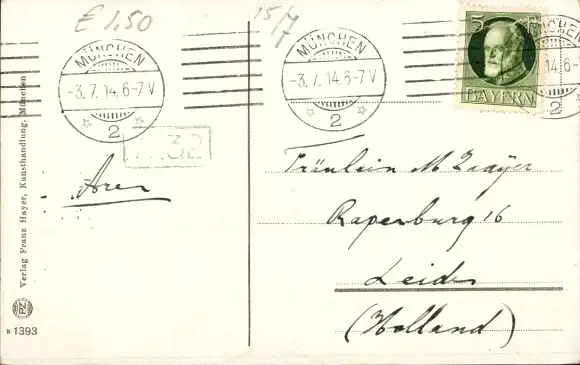 £ 1.50
15/7
MÜNCHEN
-3.7.14.6-7 V
2
MÜNCHEN
-3.7.14.6-7 V
2
MÜNCHEN
14.6-
2
5
BAYERN
32
Fräulein M Zaaÿer
Rapenburg 16
Leiden
(Holland)
Verlag Franz Hayer, Kunsthandlung, München
PZ
N 1393